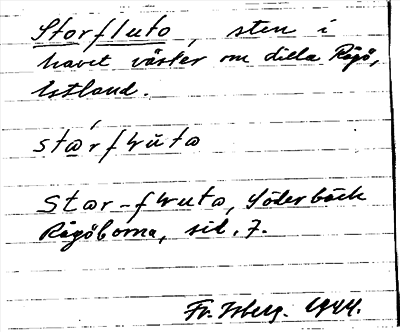 Storfluto, sten i
havet väster om lilla Rågö,
Estland.
stárfłuta
Star-fłuta, Söderbäck
Rågöborna, sid. 7.
Fr. Isberg. 1944.